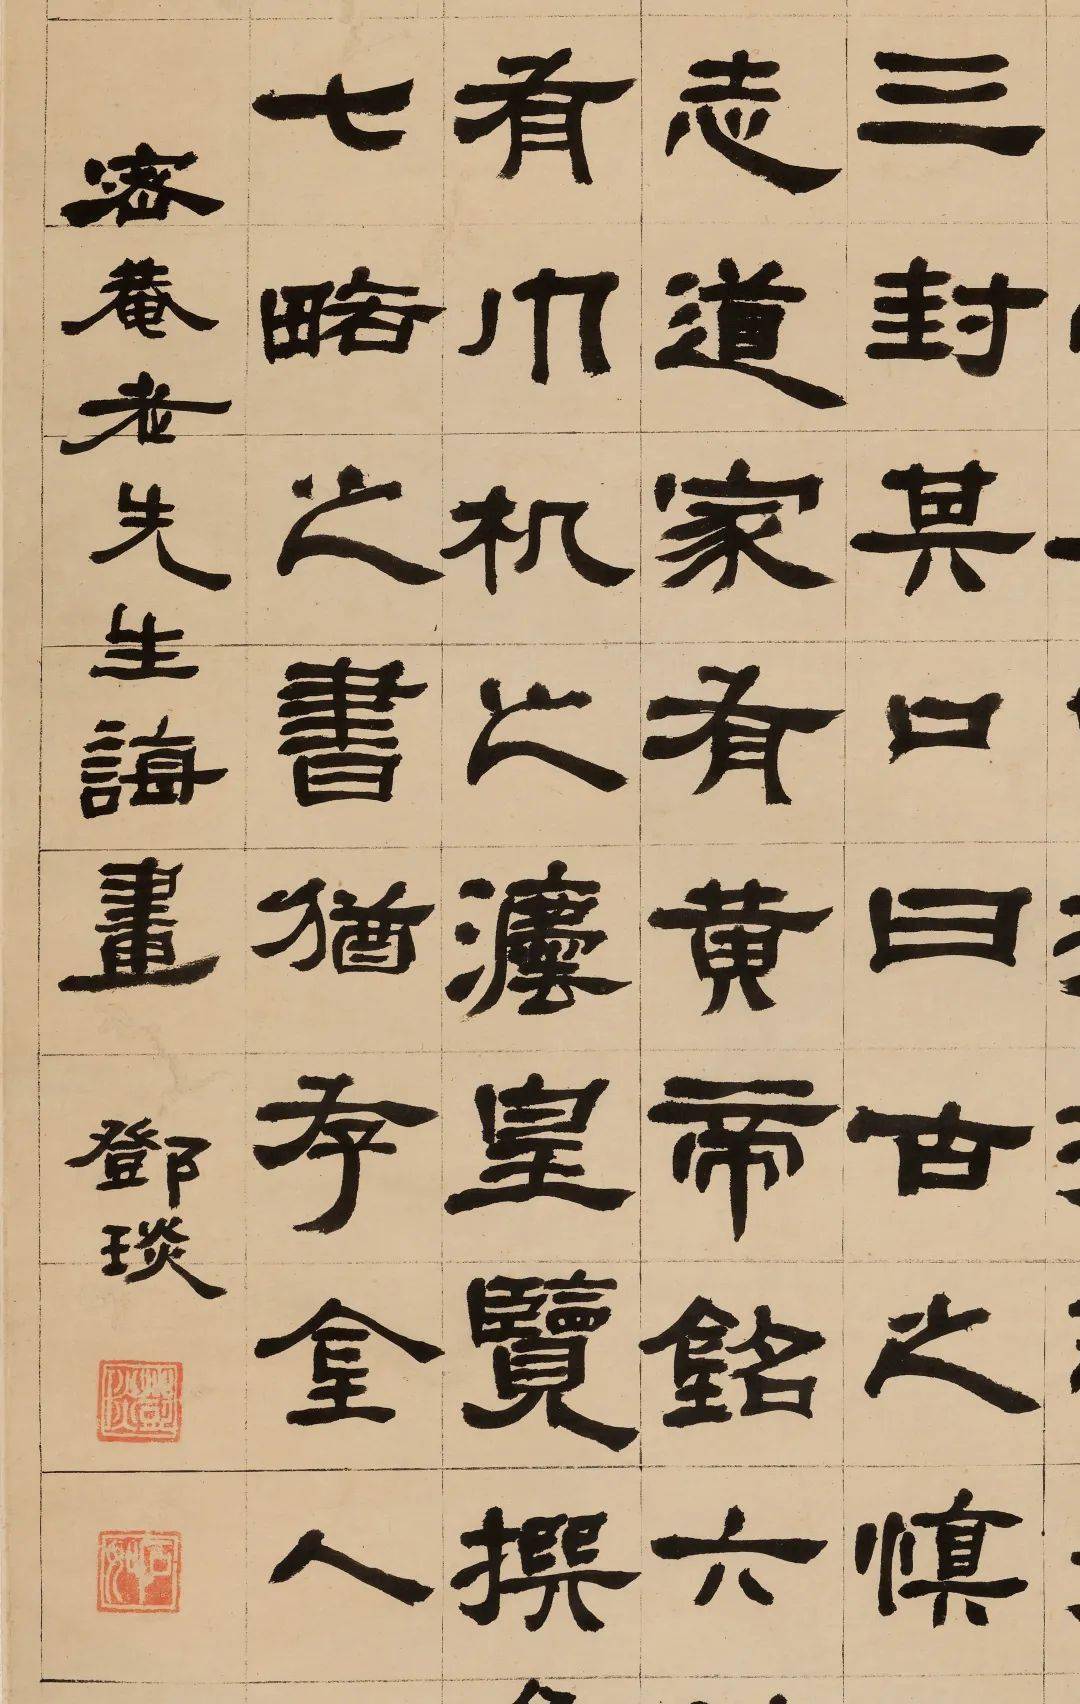 三封其口曰古之慎
志道家有黄帝銘六
有巾机之灋皇覽撰
七略之書猶存金人
密菴老先生誨畫 鄧琰
鄧琰
石如